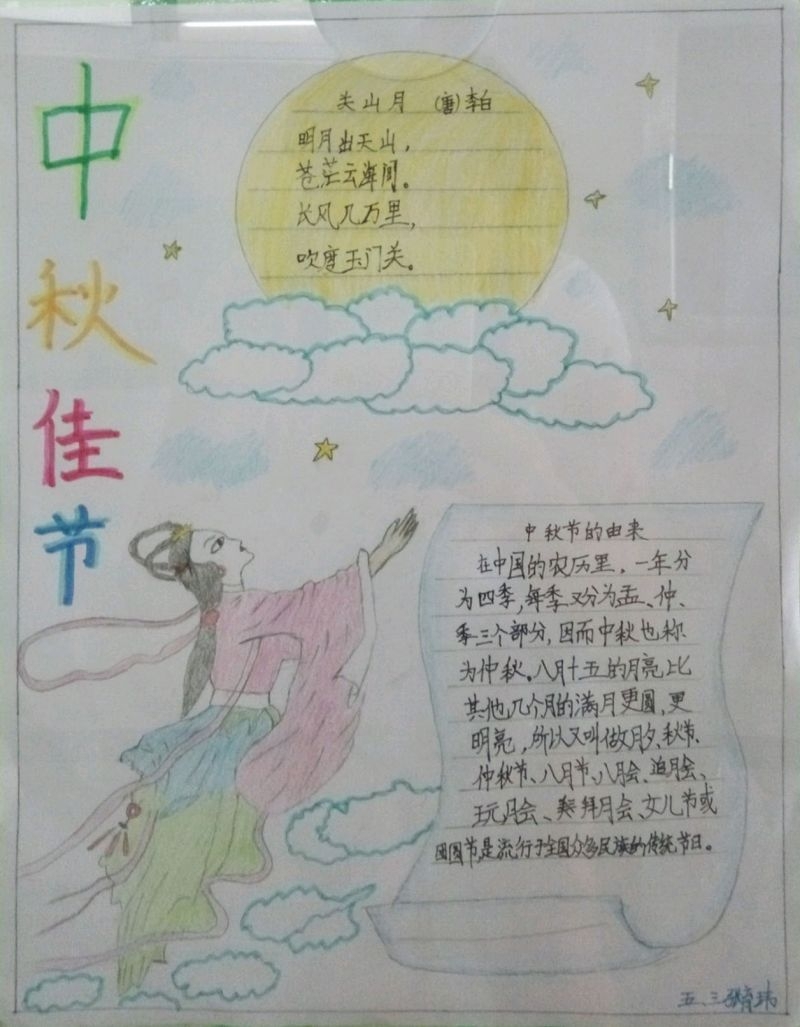 中秋佳节
关山月 (唐)李白
明月出天山，
苍茫云海间。
长风几万里，
吹度玉门关。
中秋节的由来
在中国的农历里，一年分
为四季，每季又分为孟、仲、
季三个部分，因而中秋也称
为仲秋。八月十五的月亮比
其他几个月的满月更圆，更
明亮，所以又叫做月夕、秋节、
仲秋节、八月节、八月会、追月会、
玩月会、拜月会、女儿节或
团圆节，是流行于全国众多民族的传统节日。
五、三